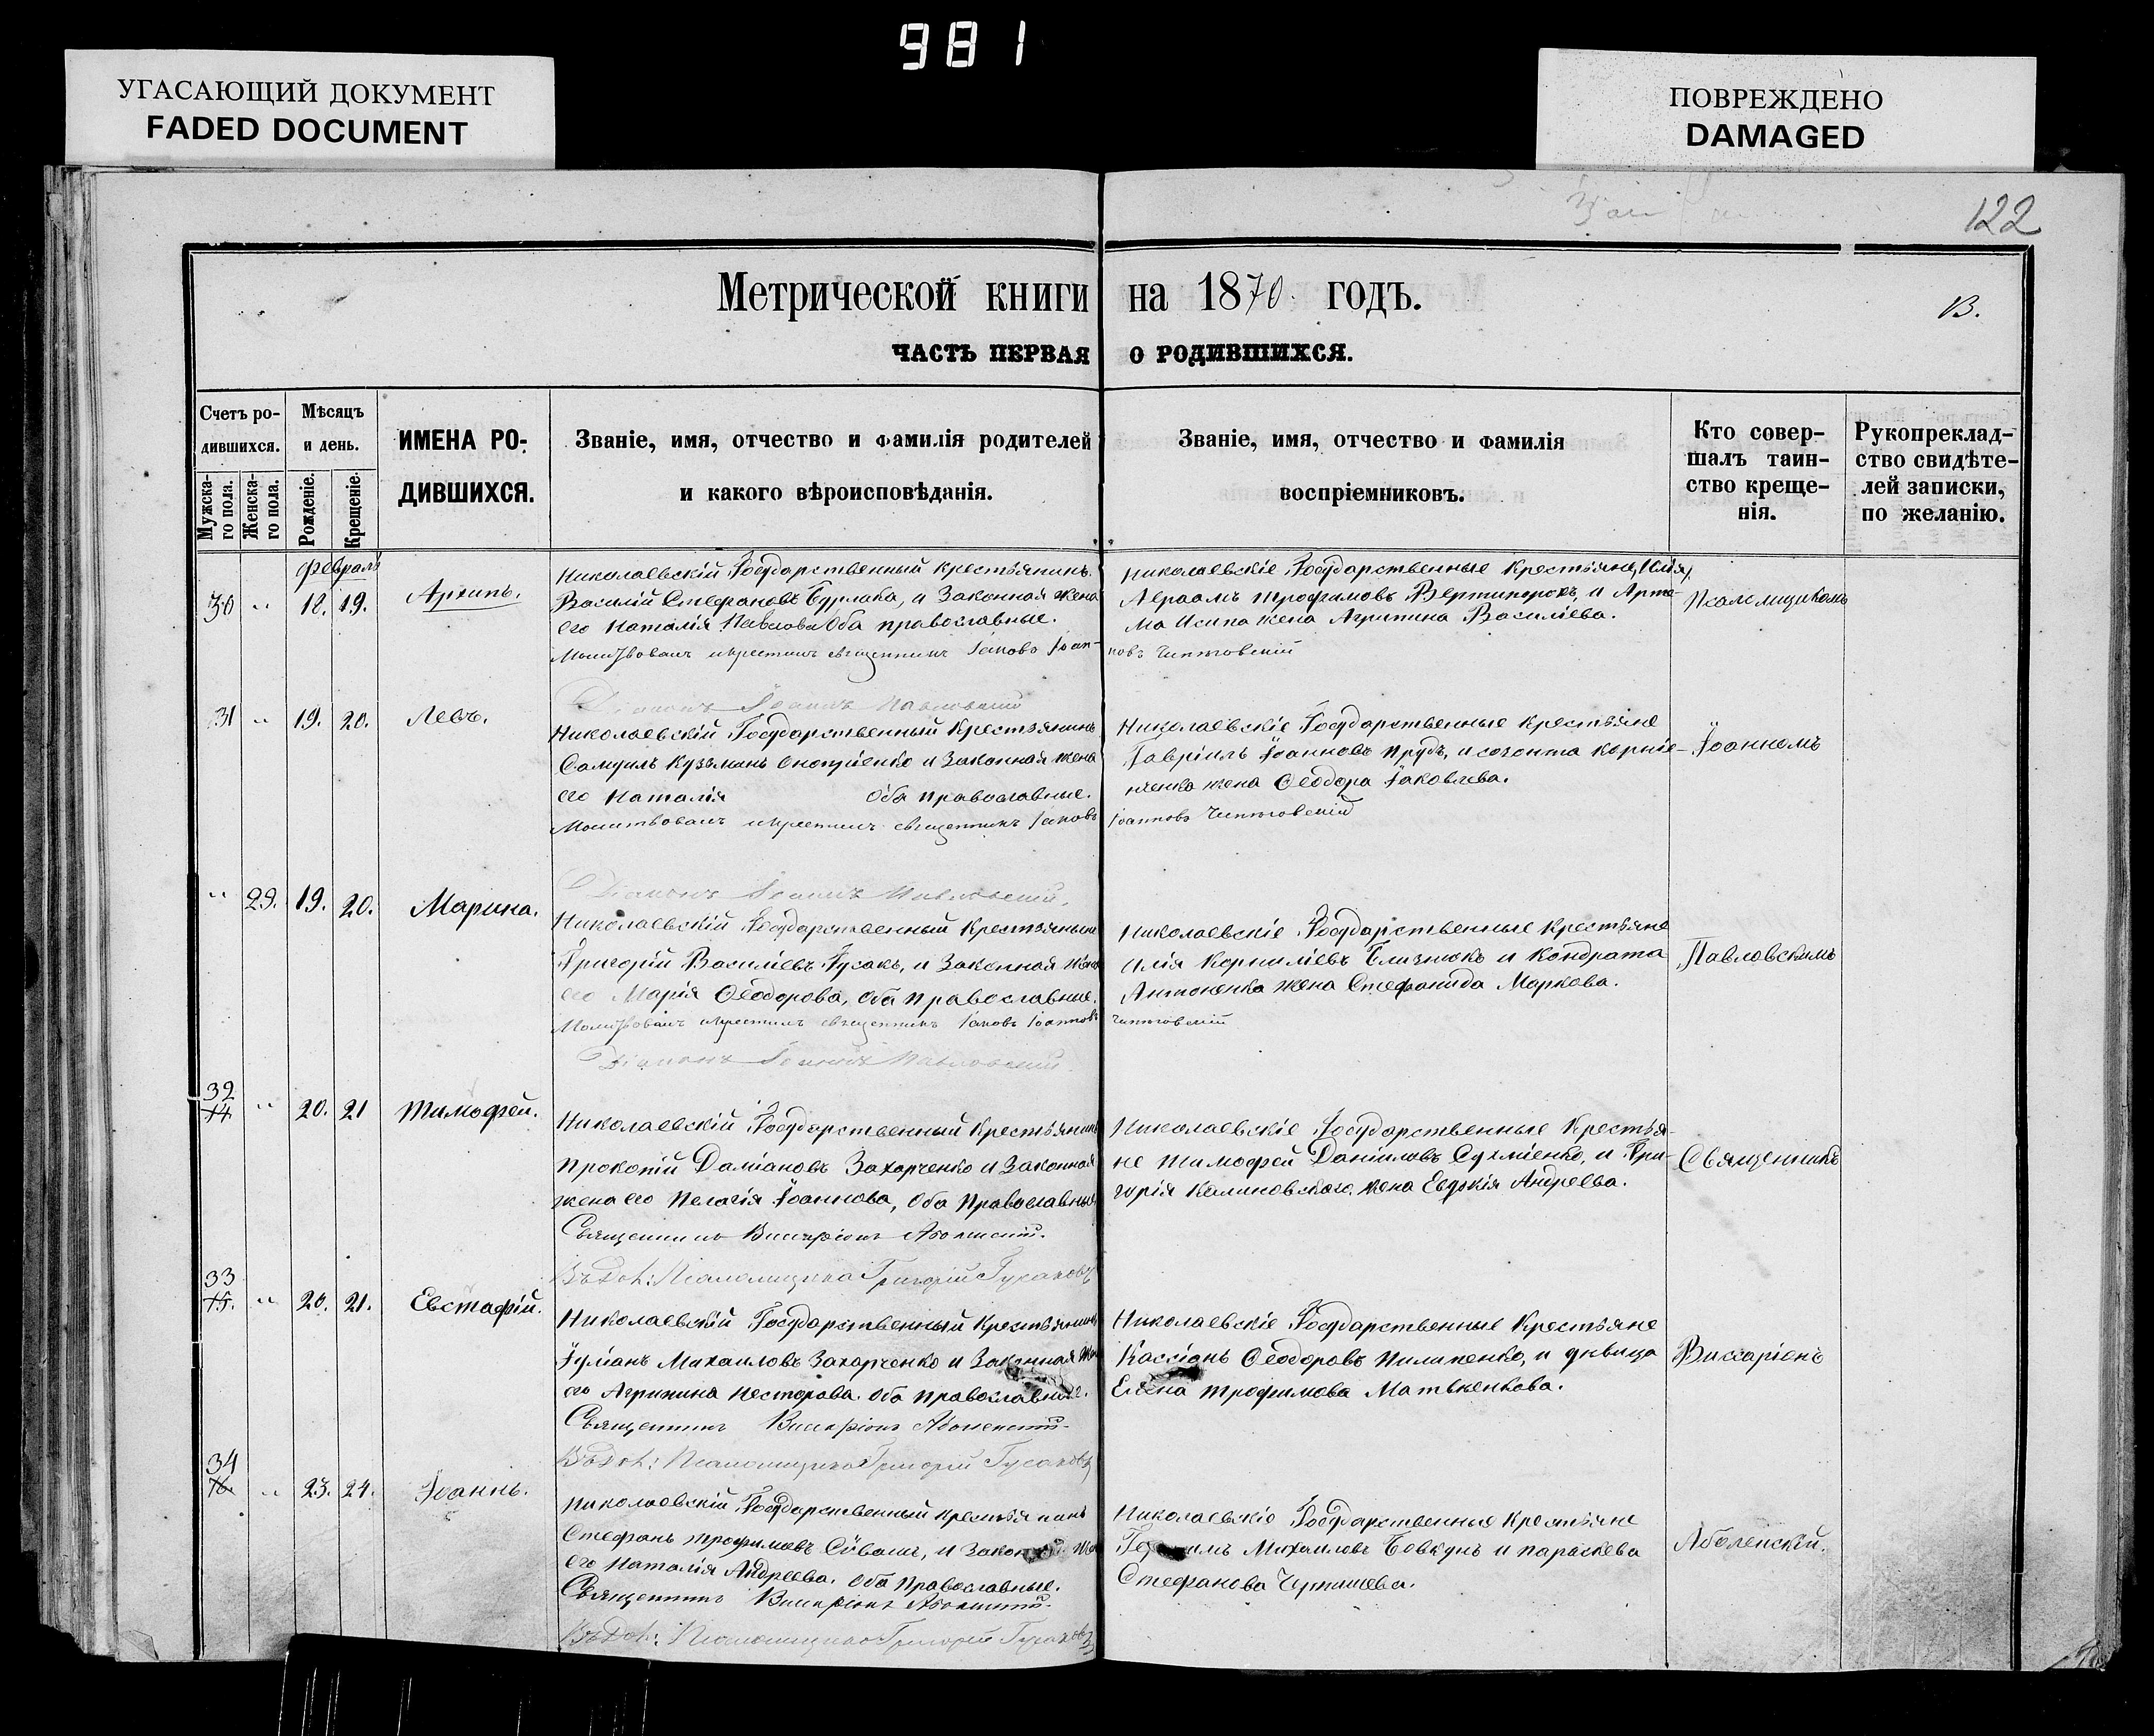 981
УГАСАЮЩИЙ ДОКУМЕНТ
FADED DOCUMENT
ПОВРЕЖДЕНО
DAMAGED
122
Метрической книги на 1870 годъ.
В.
ЧАСТЬ ПЕРВАЯ О РОДИВШИХСЯ.
Счетъ ро-
дившихся.
Мужска-
го пола.
Женска-
го пола.
Мѣсяцъ
и день.
Рожденіе.
Крещеніе.
ИМЕНА РО-
ДИВШИХСЯ.
Званіе, имя, отчество и фамилія родителей
и какого вѣроисповѣданія.
Званіе, имя, отчество и фамилія
воспріемниковъ.
Кто совер-
шалъ таин-
ство креще-
нія.
Рукопреклад-
ство свидѣте-
лей записки,
по желанію.
Февраль
30 " 18. 19. Архипъ.
Николаевскій Государственный крестьянинъ
Василій Стефановъ Бурлака, и Законная жена
его Наталія Павлова Оба православные.
Молитвовалъ и крестилъ священникъ Іаковъ Іоан-
новъ
Діаконъ Іоаннъ Павловскій
Николаевскіе Государственные Крестьяне
Авраамъ Трофимовъ Вертипорохъ, и Арте-
ма жена Агрипина Василіева.
Псаломщикомъ
31 " 19. 20. Левъ.
Николаевскій Государственный Крестьянинъ
Самуилъ Кузьминъ и Законная жена
его Наталія Оба православные.
Молитвовалъ и крестилъ священникъ Іаковъ
Іоанновъ
Діаконъ Іоаннъ Павловскій.
Николаевскіе Государственные крестьяне
Гавріилъ Іоанновъ Прудъ, и Созонта Корніе-
ненка жена Ѳеодора Іаковлева.
Іоанномъ
" 29. 19. 20. Марина.
Николаевскій Государственный Крестьянинъ
Григорій Василіевъ Гусакъ, и Законная жена
его Марія Ѳеодорова, Оба православные.
Молитвовалъ и крестилъ священникъ Іаковъ Іоанновъ
Діаконъ Іоаннъ Павловскій.
Николаевскіе Государственные Крестьяне
Илія Корниліевъ Близнюкъ и Кондрата
Антоненка жена Стефанида Маркова.
Павловскимъ
32
14 " 20. 21 Тимофей.
Николаевскій Государственный Крестьянинъ
Прокопій Даміановъ Захарченко и Законная
жена его Пелагія Іоаннова, Оба Православные
Священникъ Виссаріонъ Аболенскій.
Въ дол: Псаломщика Григорій Гусаковъ
Николаевскіе Государственные Крестья-
не Тимофей Даніиловъ Сухміенко, и Гри-
горія Калиновского жена Евдокія Андреева.
Священникъ
33
15. " 20. 21. Евстафій.
Николаевскій Государственный Крестьянинъ
Іуліанъ Михаиловъ Захарченко и Законная
его Агрипина Несторова. Оба православные.
Священникъ Виссаріонъ Аболенскій.
Въ дол: Псаломщика Григорій Гусаковъ
Николаевскіе Государственные Крестьяне
Кассіанъ Ѳеодоровъ Пилипенко, и дѣвица
Елена Трофимова Матвѣенкова.
Виссаріонъ
34
16. " 23. 24. Іоаннъ.
Николаевскій Государственный крестьянинъ
Стефанъ Трофимовъ и
его Наталія Андреева. Оба Православные.
Священникъ Виссаріонъ Аболенскій.
Въ дол: Псаломщика Григорій Гусаковъ
Николаевскіе Государственные Крестьяне
Михаиловъ Бовкунъ и Параскева
Стефанова
Аболенскій.